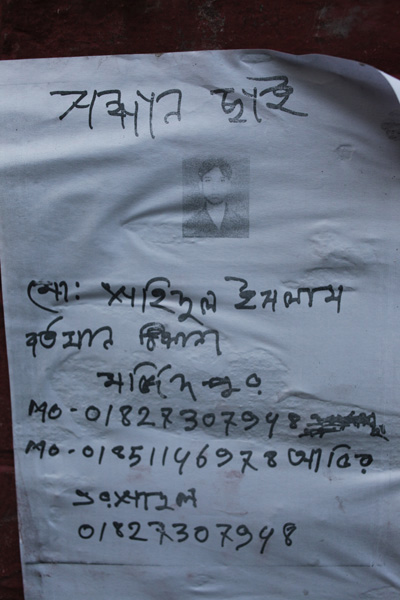 সন্ধান চাই
মো: শহিদুল ইসলাম
বর্তমান ঠিকানা
MO-01827307948
MO-01851146978 আবির
01827307948